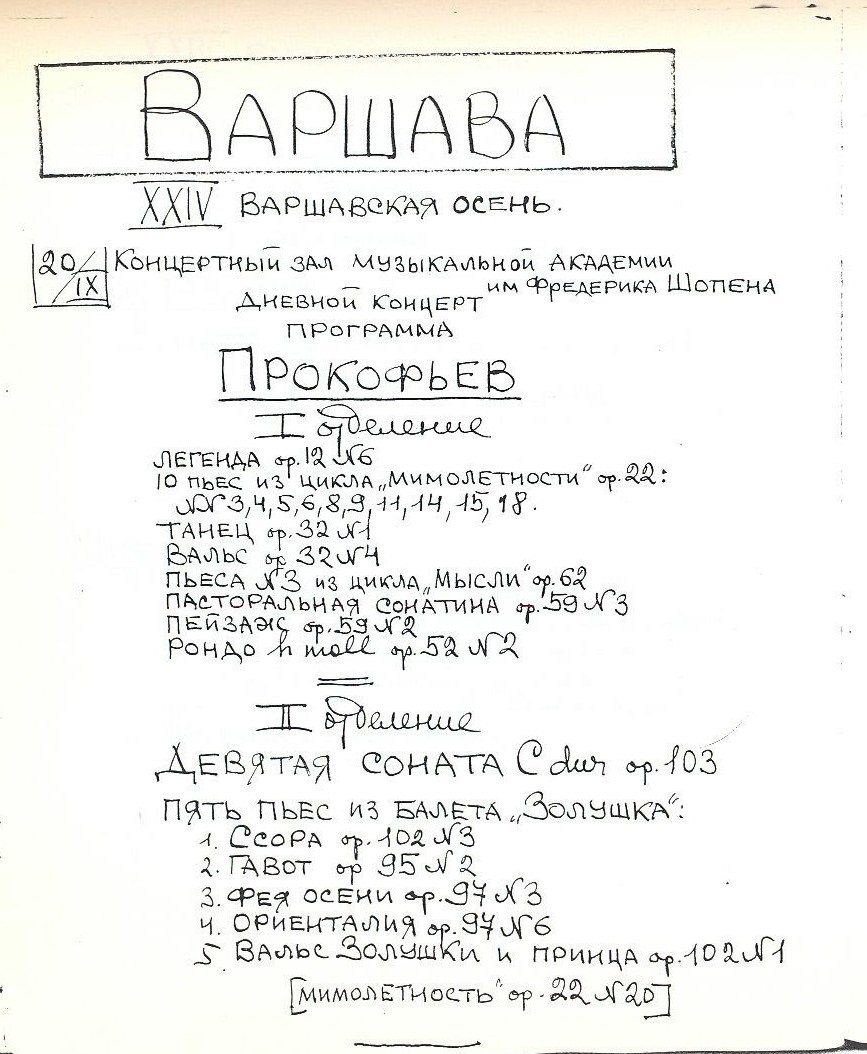 ВАРШАВА
XXIV ВАРШАВСКАЯ ОСЕНЬ.
20/IX КОНЦЕРТНЫЙ ЗАЛ МУЗЫКАЛЬНОЙ АКАДЕМИИ
ИМ ФРЕДЕРИКА ШОПЕНА
ДНЕВНОЙ КОНЦЕРТ
ПРОГРАММА
ПРОКОФЬЕВ
I отделение
ЛЕГЕНДА op.12 N6
10 ПЬЕС ИЗ ЦИКЛА „МИМОЛЕТНОСТИ" op.22:
NN 3,4,5,6,8,9,11,14,15,18.
ТАНЕЦ op.32 N1
ВАЛЬС op 32 N4
ПЬЕСА N3 ИЗ ЦИКЛА „МЫСЛИ" op.62
ПАСТОРАЛЬНАЯ СОНАТИНА op.59 N3
ПЕЙЗАЖ op.59 N2
РОНДО h moll op.52 N2
II отделение
ДЕВЯТАЯ СОНАТА C dur op.103
ПЯТЬ ПЬЕС ИЗ БАЛЕТА „ЗОЛУШКА":
1. ССОРА op.102 N3
2. ГАВОТ op 95 N2
3. ФЕЯ ОСЕНИ op.97 N3
4. ОРИЕНТАЛИЯ op.97 N6
5. ВАЛЬС ЗОЛУШКИ И ПРИНЦА op.102 N1
[МИМОЛЕТНОСТЬ" op.22 N20]